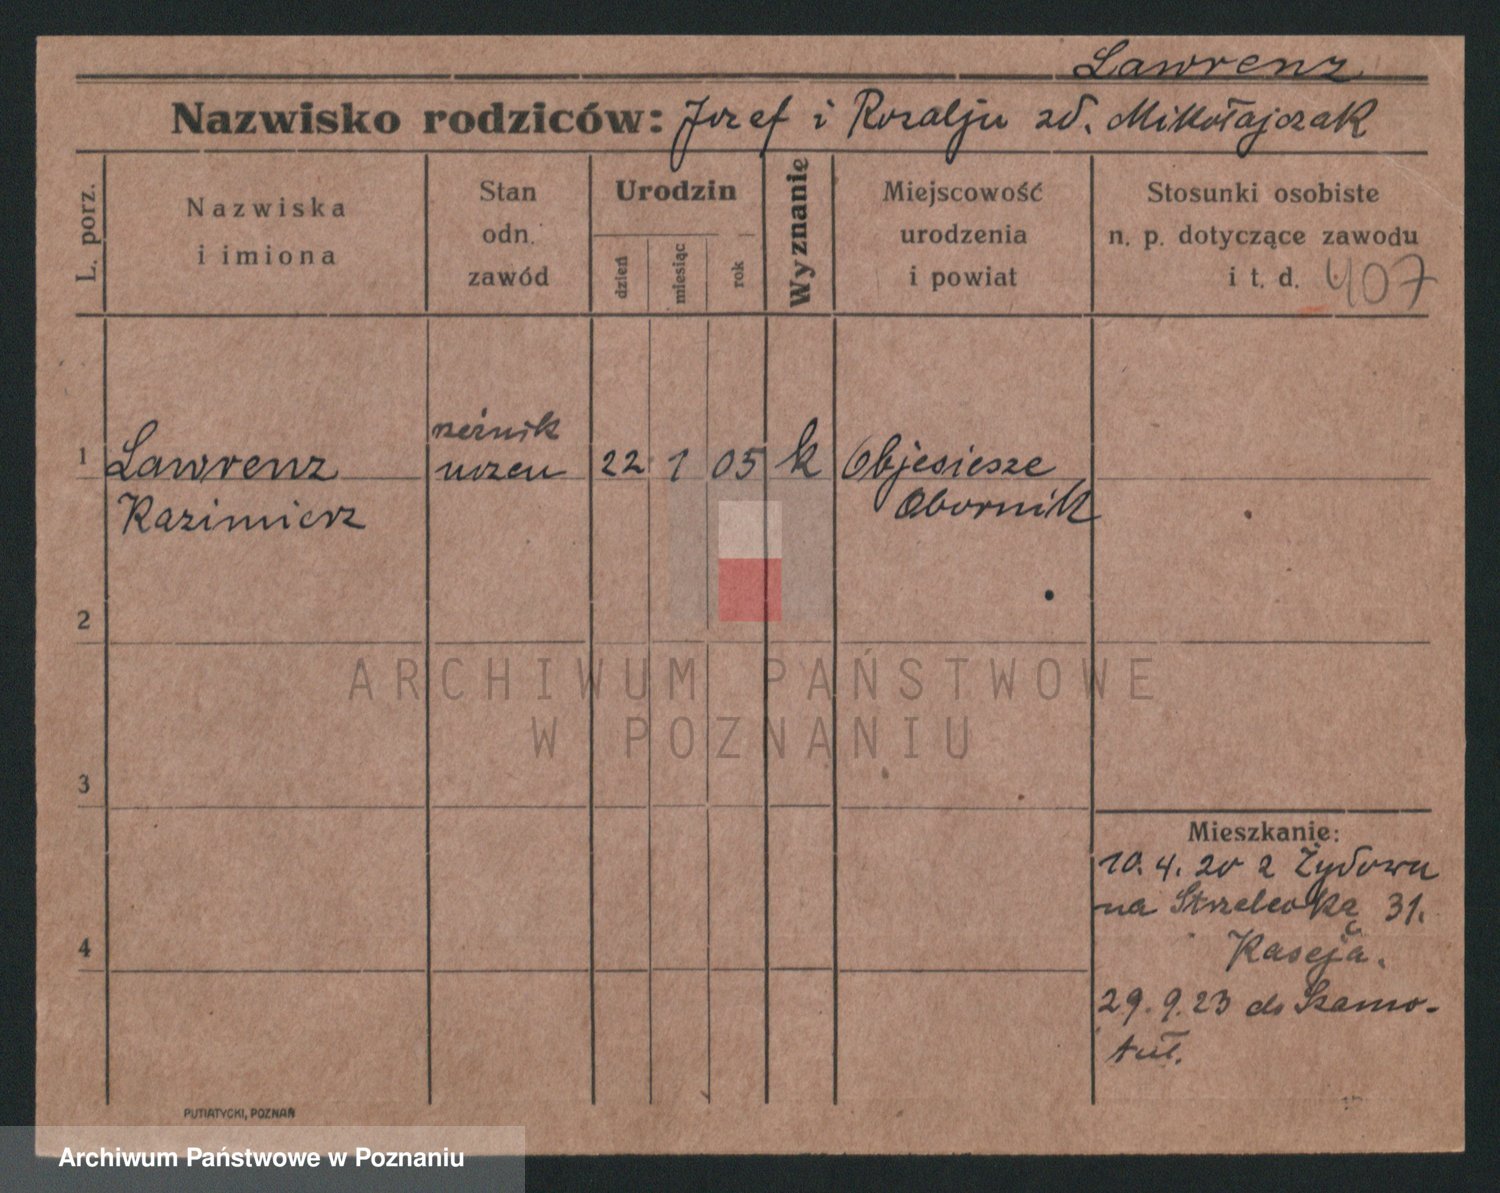 Lawrenz
Nazwisko rodziców: Jozef i Rozalju zd. Mikołajczak
L. porz.
Nazwiska
i imiona
Stan
odn.
zawód
Urodzin
dzień
miesiąc
rok
Wyznanie
Miejscowość
urodzenia
i powiat
Stosunki osobiste
n. p. dotyczące zawodu
i t. d. 407
rzeźnik
1 Lawrenz uczeu 22 1 05 k Objesiesze
Kazimierz Obornik
2
ARCHIWUM PAŃSTWOWE
W POZNANIU
3
Mieszkanie:
10. 4. 20 z Żydowu
na Strzelecką 31.
Kaseja.
4
29. 9. 23 do Szamo-
tuł.
PUTIATYCKI, POZNAŃ
Archiwum Państwowe w Poznaniu